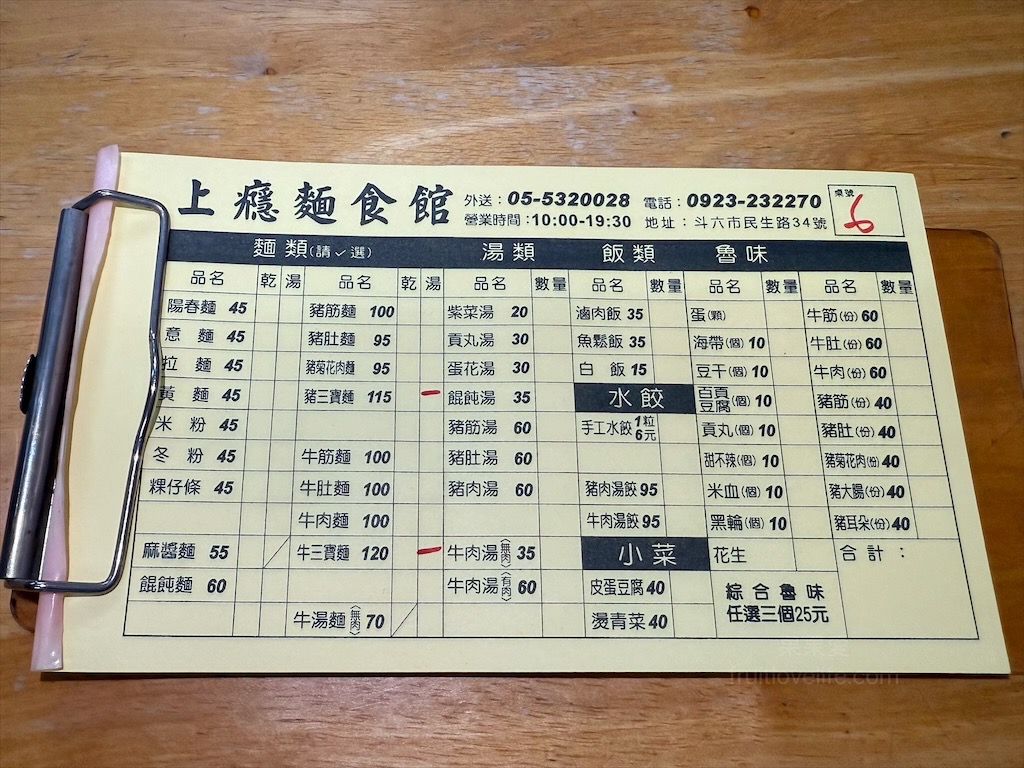 上癮麵食館 外送：05-5320028 電話：0923-232270 桌號 6
營業時間：10:00-19:30 地址：斗六市民生路34號
麵類(請✓選) 湯類 飯類 魯味
品名 乾 湯 品名 乾 湯 品名 數量 品名 數量 品名 數量 品名 數量
陽春麵 45 豬筋麵 100 紫菜湯 20 滷肉飯 35 蛋(顆) 牛筋(份) 60
意麵 45 豬肚麵 95 貢丸湯 30 魚鬆飯 35 海帶(個) 10 牛肚(份) 60
拉麵 45 豬菊花肉麵 95 蛋花湯 30 白飯 15 豆干(個) 10 牛肉(份) 60
黃麵 45 豬三寶麵 115 餛飩湯 35 水餃 百頁豆腐(個) 10 豬筋(份) 40
米粉 45 豬筋湯 60 手工水餃 1粒6元 貢丸(個) 10 豬肚(份) 40
冬粉 45 牛筋麵 100 豬肚湯 60 甜不辣(個) 10 豬菊花肉(份) 40
粿仔條 45 牛肚麵 100 豬肉湯 60 豬肉湯餃 95 米血(個) 10 豬大腸(份) 40
牛肉麵 100 牛肉湯餃 95 黑輪(個) 10 豬耳朵(份) 40
麻醬麵 55 牛三寶麵 120 牛肉湯(無肉) 35 小菜 花生 合計：
餛飩麵 60 牛肉湯(有肉) 60 皮蛋豆腐 40 綜合魯味
牛湯麵(無肉) 70 燙青菜 40 任選三個25元
fruitlovelife.com